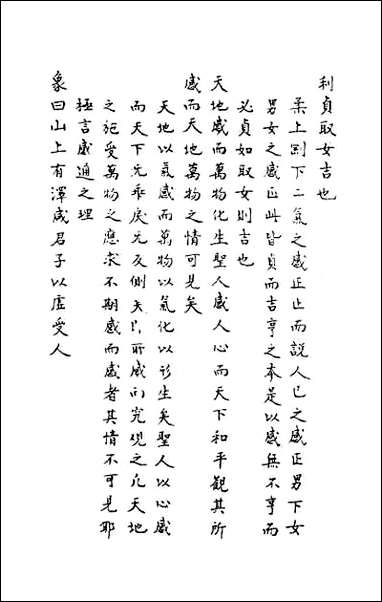 利貞取女吉也
柔上剛下二氣之感正止而說人已之感正男下女
男女之感正此皆貞而吉亨之本是以感無不亨而
必貞如取女則吉也
天地感而萬物化生聖人感人心而天下和平觀其所
感而天地萬物之情可見矣
天地以氣感而萬物以氣化以形生矣聖人以心感
而天下无乖戾无反側夫即所感而究觀之凡天地
之施受萬物之應求不期感而感者其情不可見耶
極言感通之理
象曰山上有澤咸君子以虛受人